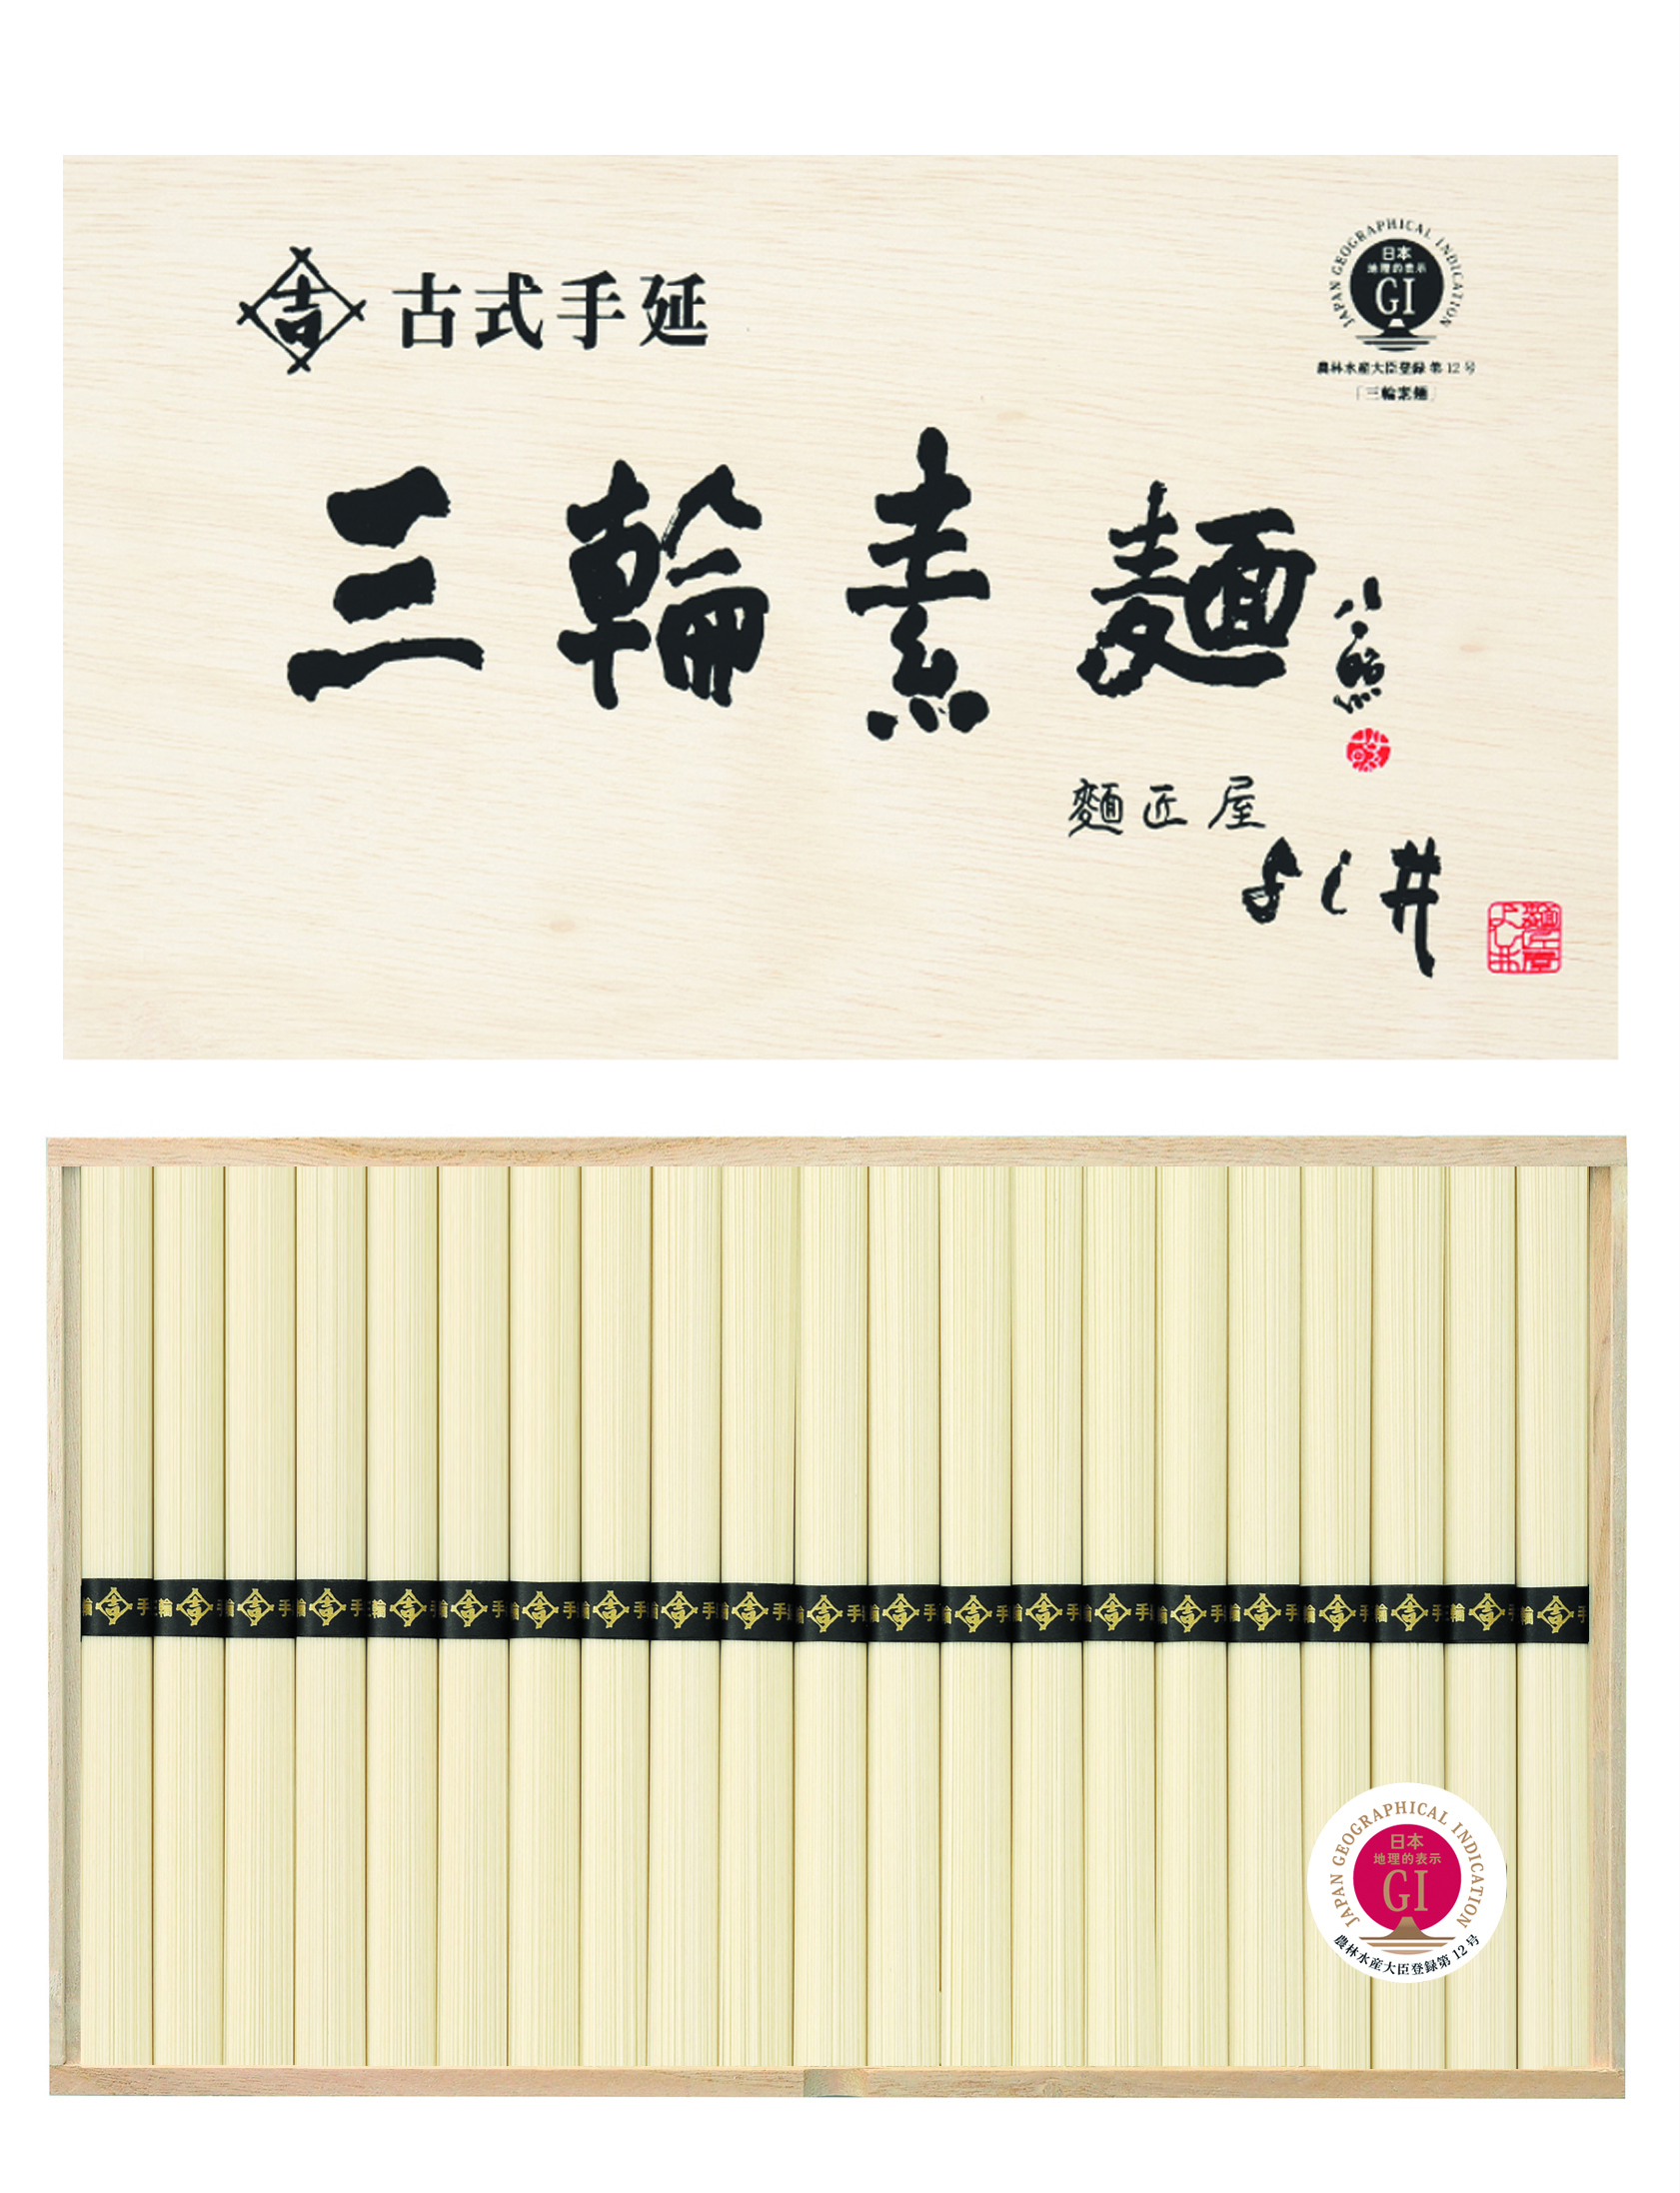 吉 古式手延
JAPAN GEOGRAPHICAL INDICATION
日本
地理的表示
GI
農林水産大臣登録 第12号
「三輪素麺」
三輪素麺
麺匠屋
よし井
JAPAN GEOGRAPHICAL INDICATION
日本
地理的表示
GI
農林水産大臣登録第12号